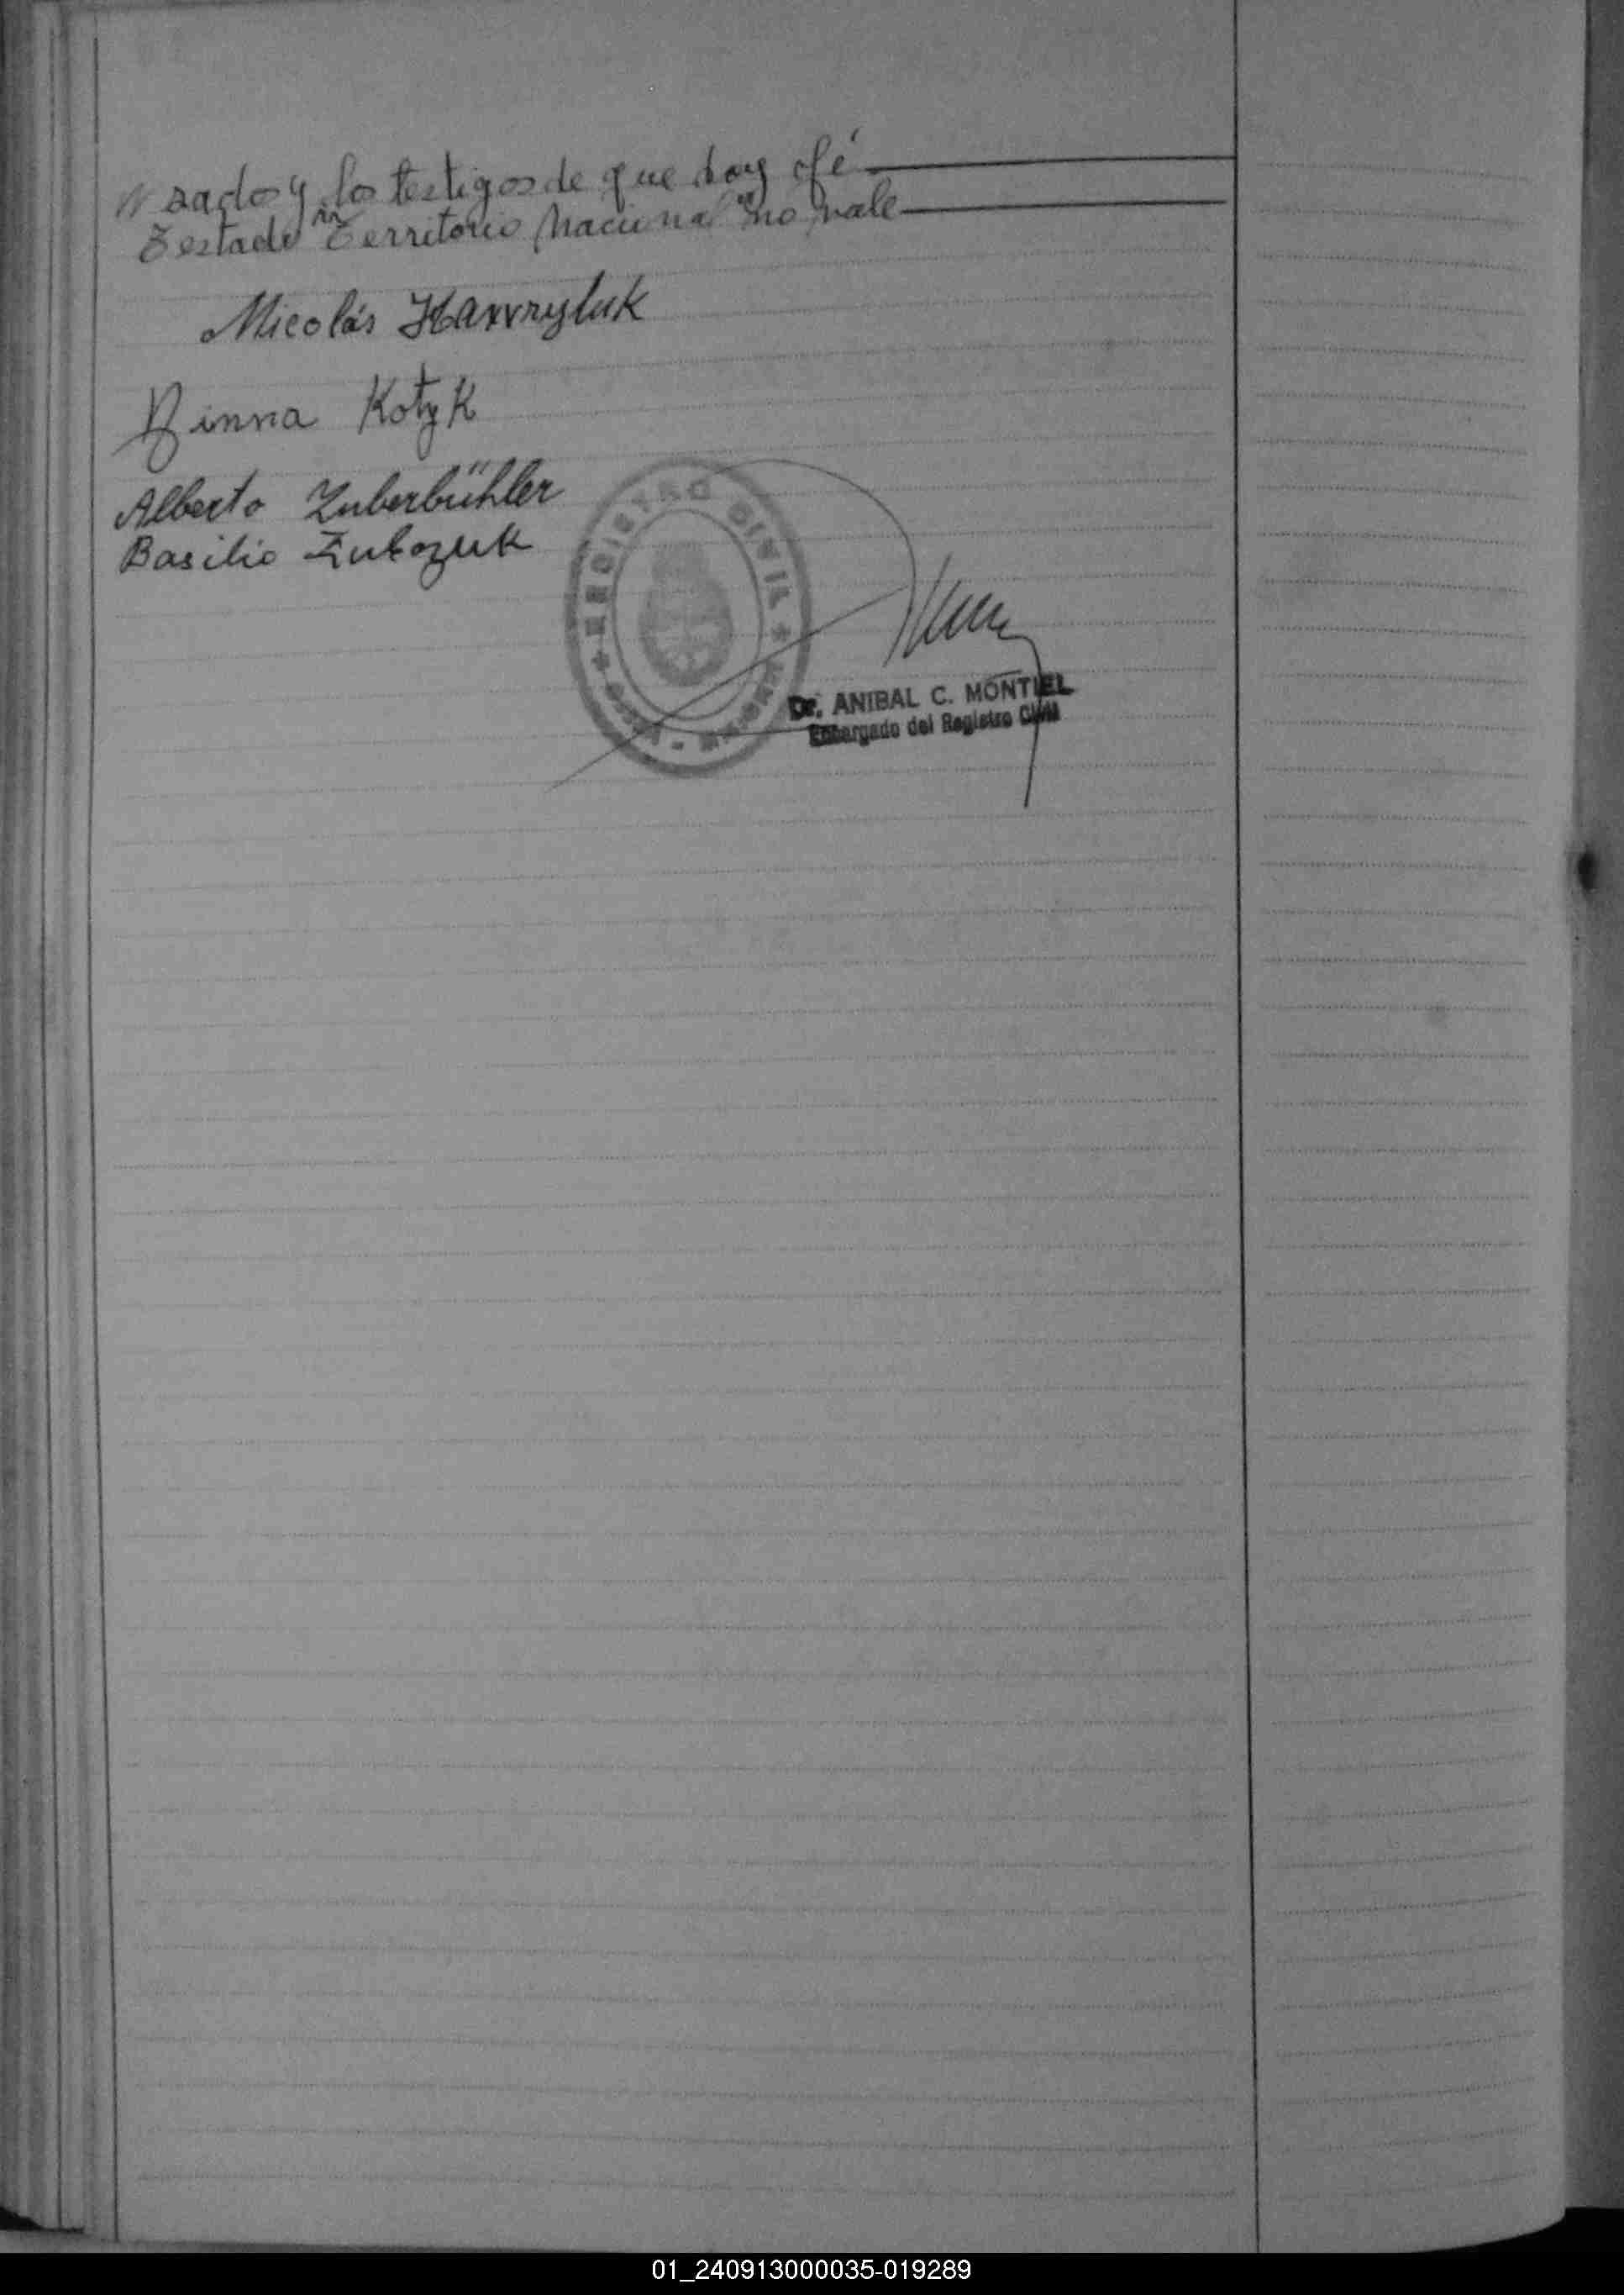 sado y los testigos de que doy fé
Testado "Territorio Nacional" no vale
Nicolás Hawryluk
Kotyk
Alberto Zuberbühler
Basilio
REGISTRO CIVIL
Dr. ANIBAL C. MONTIEL
Encargado del Registro Civil
01_240913000035-019289